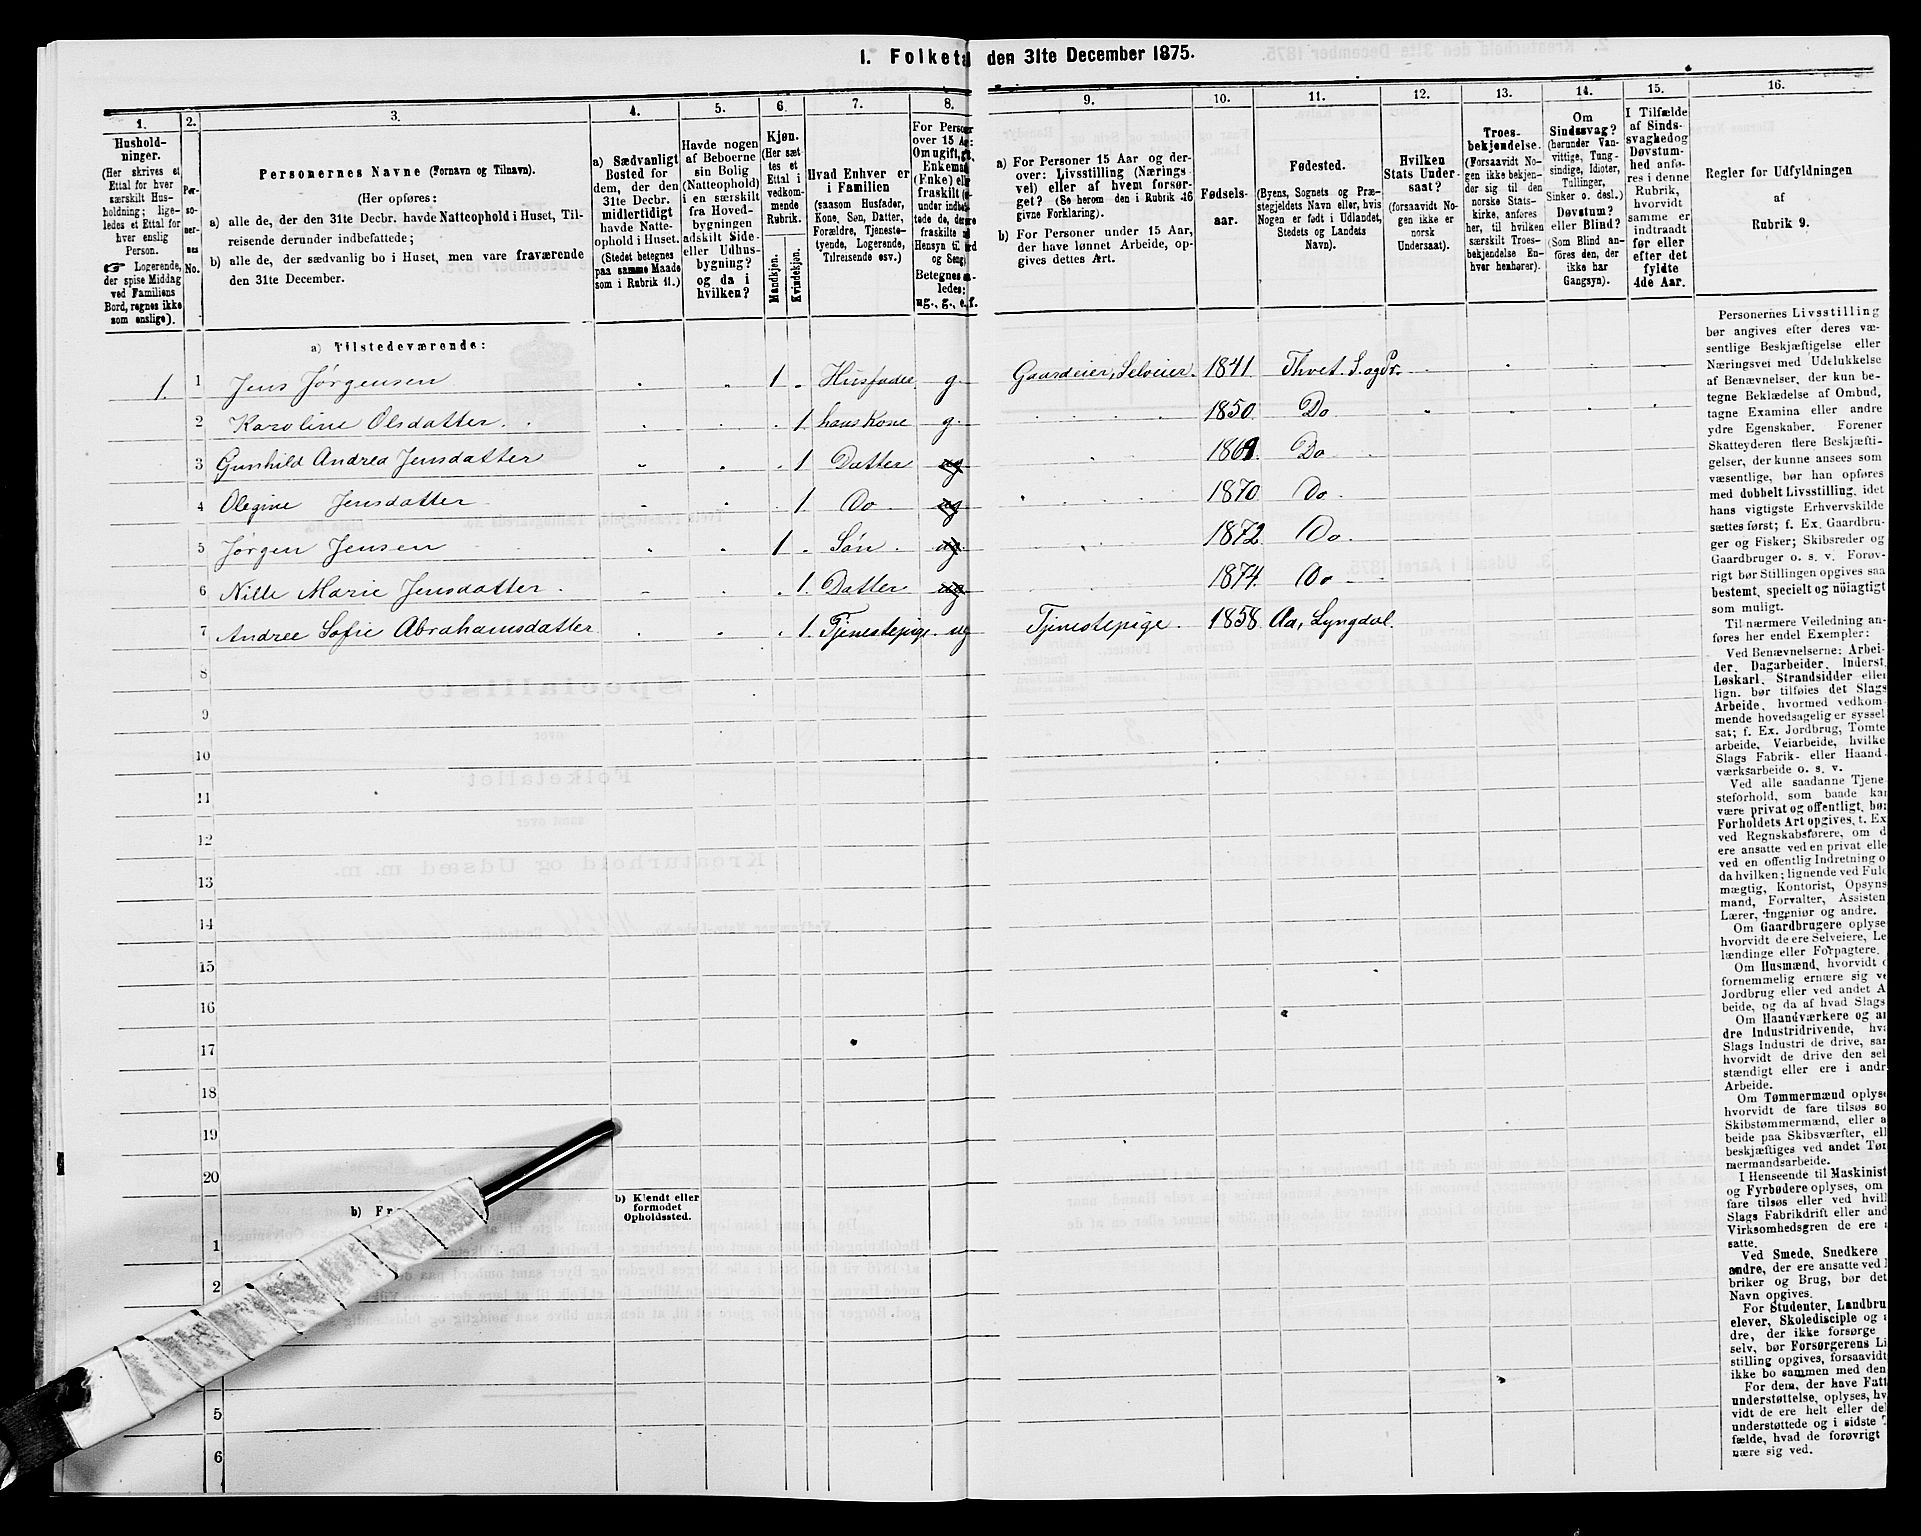 I. Folketal den 31te December 1875.
1. 2. 3. 4. 5. 6. 7. 8. 9. 10. 11. 12. 13. 14. 15. 16.
Hushold-
ninger.
(Her skrives et
Ettal for hver
særskilt Hus-
holdning; lige-
ledes et Ettal for
hver enslig
Person.
☞ Logerende,
der spise Middag
ved Familiens
Bord, regnes ikke
som enslige).
Per-
so-
ner-
nes
No.
Personernes Navne (Fornavn og Tilnavn).
(Her opføres:
a) alle de, der den 31te Decbr. havde Natteophold i Huset, Til-
reisende derunder indbefattede;
b) alle de, der sædvanlig bo i Huset, men vare fraværende
den 31te December.
a) Sædvanligt
Bosted for
dem, der den
31te Decbr.
midlertidigt
havde Natte-
ophold i Huset.
(Stedet betegnes
paa samme Maade
som i Rubrik 11.)
Havde nogen
af Beboerne
sin Bolig
(Natteophold)
i en særskilt
fra Hoved-
bygningen
adskilt Side-
eller Udhus-
bygning?
og da i
hvilken?
Kjøn.
(Her sæt-
tes et
Ettal i
vedkom-
mende
Rubrik.
Mandkjøn.
Kvindekjøn.
Hvad Enhver er
i Familien
(saasom Husfader,
Kone, Søn, Datter,
Forældre, Tjeneste-
tyende, Logerende,
Tilreisende osv.)
For Personer
over 15 Aar:
Om ugift, gift,
Enkemand
(Enke) eller
fraskilt
Betegnes
ledes:
ug., g., e., f.
a) For Personer 15 Aar og der-
over: Livsstilling (Nærings
vei) eller af hvem forsør-
get? (Se herom den i Rubrik 16
givne Forklaring).
b) For Personer under 15 Aar,
der have lønnet Arbeide, op-
gives dettes Art.
Fødsels-
aar.
Fødested.
(Byens, Sognets og Præ-
stegjeldets Navn eller, hvis
Nogen er født i Udlandet,
Stedets og Landets
Navn).
Hvilken
Stats Under-
saat?
(forsaavidt No-
gen ikke er
norsk
Undersaat).
Troes-
bekjendelse.
(Forsaavidt No-
gen ikke bekjen-
der sig til den
norske Stats-
kirke, anføres
her, til hvilken
særskilt Troes-
bekjendelse En-
hver henhører).
Om
Sindssvag?
(herunder Van-
vittige, Tung-
sindige, Idioter,
Tullinger,
Sinker o. desl.).
Døvstum?
eller Blind?
(Som Blind an-
føres den, der
ikke har
Gangsyn).
I Tilfælde
af Sinds-
svaghed og
Døvstum-
hed anfø-
res i denne
Rubrik,
hvorvidt
samme er
indtraadt
før eller
efter det
fyldte
4de Aar.
Regler for Udfyldningen
af
Rubrik 9.
a) Tilstedeværende:
1. 1 Jens Jørgensen 1 Husfader g. Gaardeier, Selveier. 1841 Thvet S. og Pr.
2 Karoline Olsdatter 1 hans Kone g. 1850 Do
3 Gunhild Andrea Jensdatter 1 Datter ug 1869 Do
4 Olegine Jensdatter 1 Do ug 1870 Do
5 Jørgen Jensen 1 Søn ug 1872 Do
6 Nille Marie Jensdatter 1 Datter ug 1874 Do
7 Andree Sofie Abrahamsdatter 1 Tjenestepige ug Tjenestepige. 1858 Aa, Lyngdal.
8
9
10
11
12
13
14
15
16
17
18
19
20
b) Fr
b) Kjendt eller
formodet
Opholdssted.
1
2
5
6
Personernes Livsstilling
bør angives efter deres væ-
sentlige Beskjæftigelse eller
Næringsvei med Udelukkelse
af Benævnelser, der kun be-
tegne Beklædelse af Ombud,
tagne Examina eller andre
ydre Egenskaber. Forener
Skatteyderen flere Beskjæfti-
gelser, der kunne ansees som
væsentlige, bør han opføres
med dobbelt Livsstilling, idet
hans vigtigste Erhvervskilde
sættes først; f. Ex. Gaardbru-
ger og Fisker; Skibsreder og
Gaardbruger o. s. v. Forøv-
rigt bør Stillingen opgives saa
bestemt, specielt og nöiagtigt
som muligt.
Til nærmere Veiledning an-
føres her endel Exempler:
Ved Benævnelserne: Arbei-
der, Dagarbeider, Inderst,
Løskarl, Strandsidder eller
lign. bør tilføies det Slags
Arbeide, hvormed vedkom-
mende hovedsagelig er syssel
sat; f. Ex. Jordbrug, Tomte
arbeide, Veiarbeide, hvilke
Slags Fabrik- eller Haand-
værksarbeide o. s. v.
Ved alle saadanne Tjene
steforhold, som baade kan
være privat og offentligt, bør
Forholdets Art opgives, t. Ex
ved Regnskabsførere, om d
ere ansatte ved en privat elle
ved en offentlig Indretning o
da hvilken; lignende ved Fuld
mægtig, Kontorist, Opsyns
mand, Forvalter, Assisten
Lærer, Ingeniør og andre.
Om Gaardbrugere oplyse
hvorvidt de ere Selveiere, Le
lændinge eller Forpagtere.
Om Husmænd, hvorvidt
fornemmelig ernære sig ve
Jordbrug eller ved andet A
beide, og da af hvad Slags
Om Haandværkere og an
dre Industridrivende, hva
Slags Industri de drive, sam
hvorvidt de drive den sel
stændigt eller ere i andr
Arbeide.
Om Tømmermænd oplyse
hvorvidt de fare tilsøs so
Skibstømmermænd, eller a
beide paa Skibsværfter, ell
beskjæftiges ved andet Tøm
mermandsarbeide.
I Henseende til Maskinist
og Fyrbødere oplyses, om
fare tilsøs eller ved hvilk
Slags Fabrikdrift eller and
Virksomhedsgren de ere a
satte.
Ved Smede, Snedkere
andre, der ere ansatte ved
briker og Brug, bør det
Navn opgives.
For Studenter, Landbru
elever, Skoledisciple og
dre, der ikke forsørge
selv, bør Forsørgerens Li
stilling opgives, forsaavidt
ikke bo sammen med den
For dem, der have Fatt
understøttelse, oplyses, hv
vidt de ere helt eller del
understøttede og i sidste T
fælde, hvad de forøvrigt
nære sig ved.